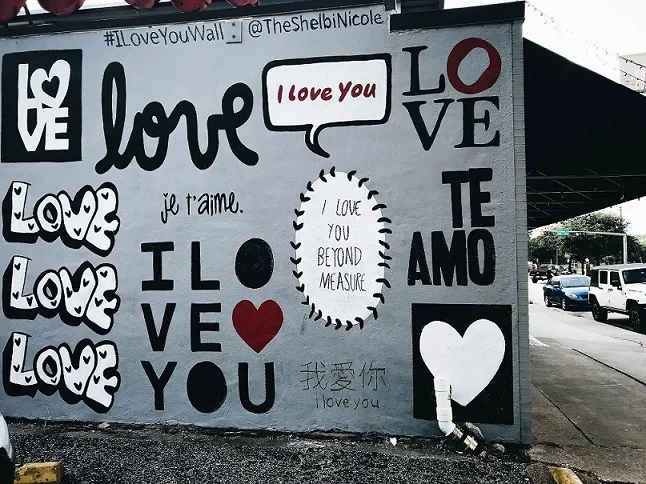 #ILoveYouWall @TheShelbiNicole
LO
VE
love
I love you
LO
VE
LOVE
LOVE
LOVE
je t'aime.
I LO
VE
YOU
I LOVE
YOU
BEYOND
MEASURE
TE
AMO
我愛你
i love you